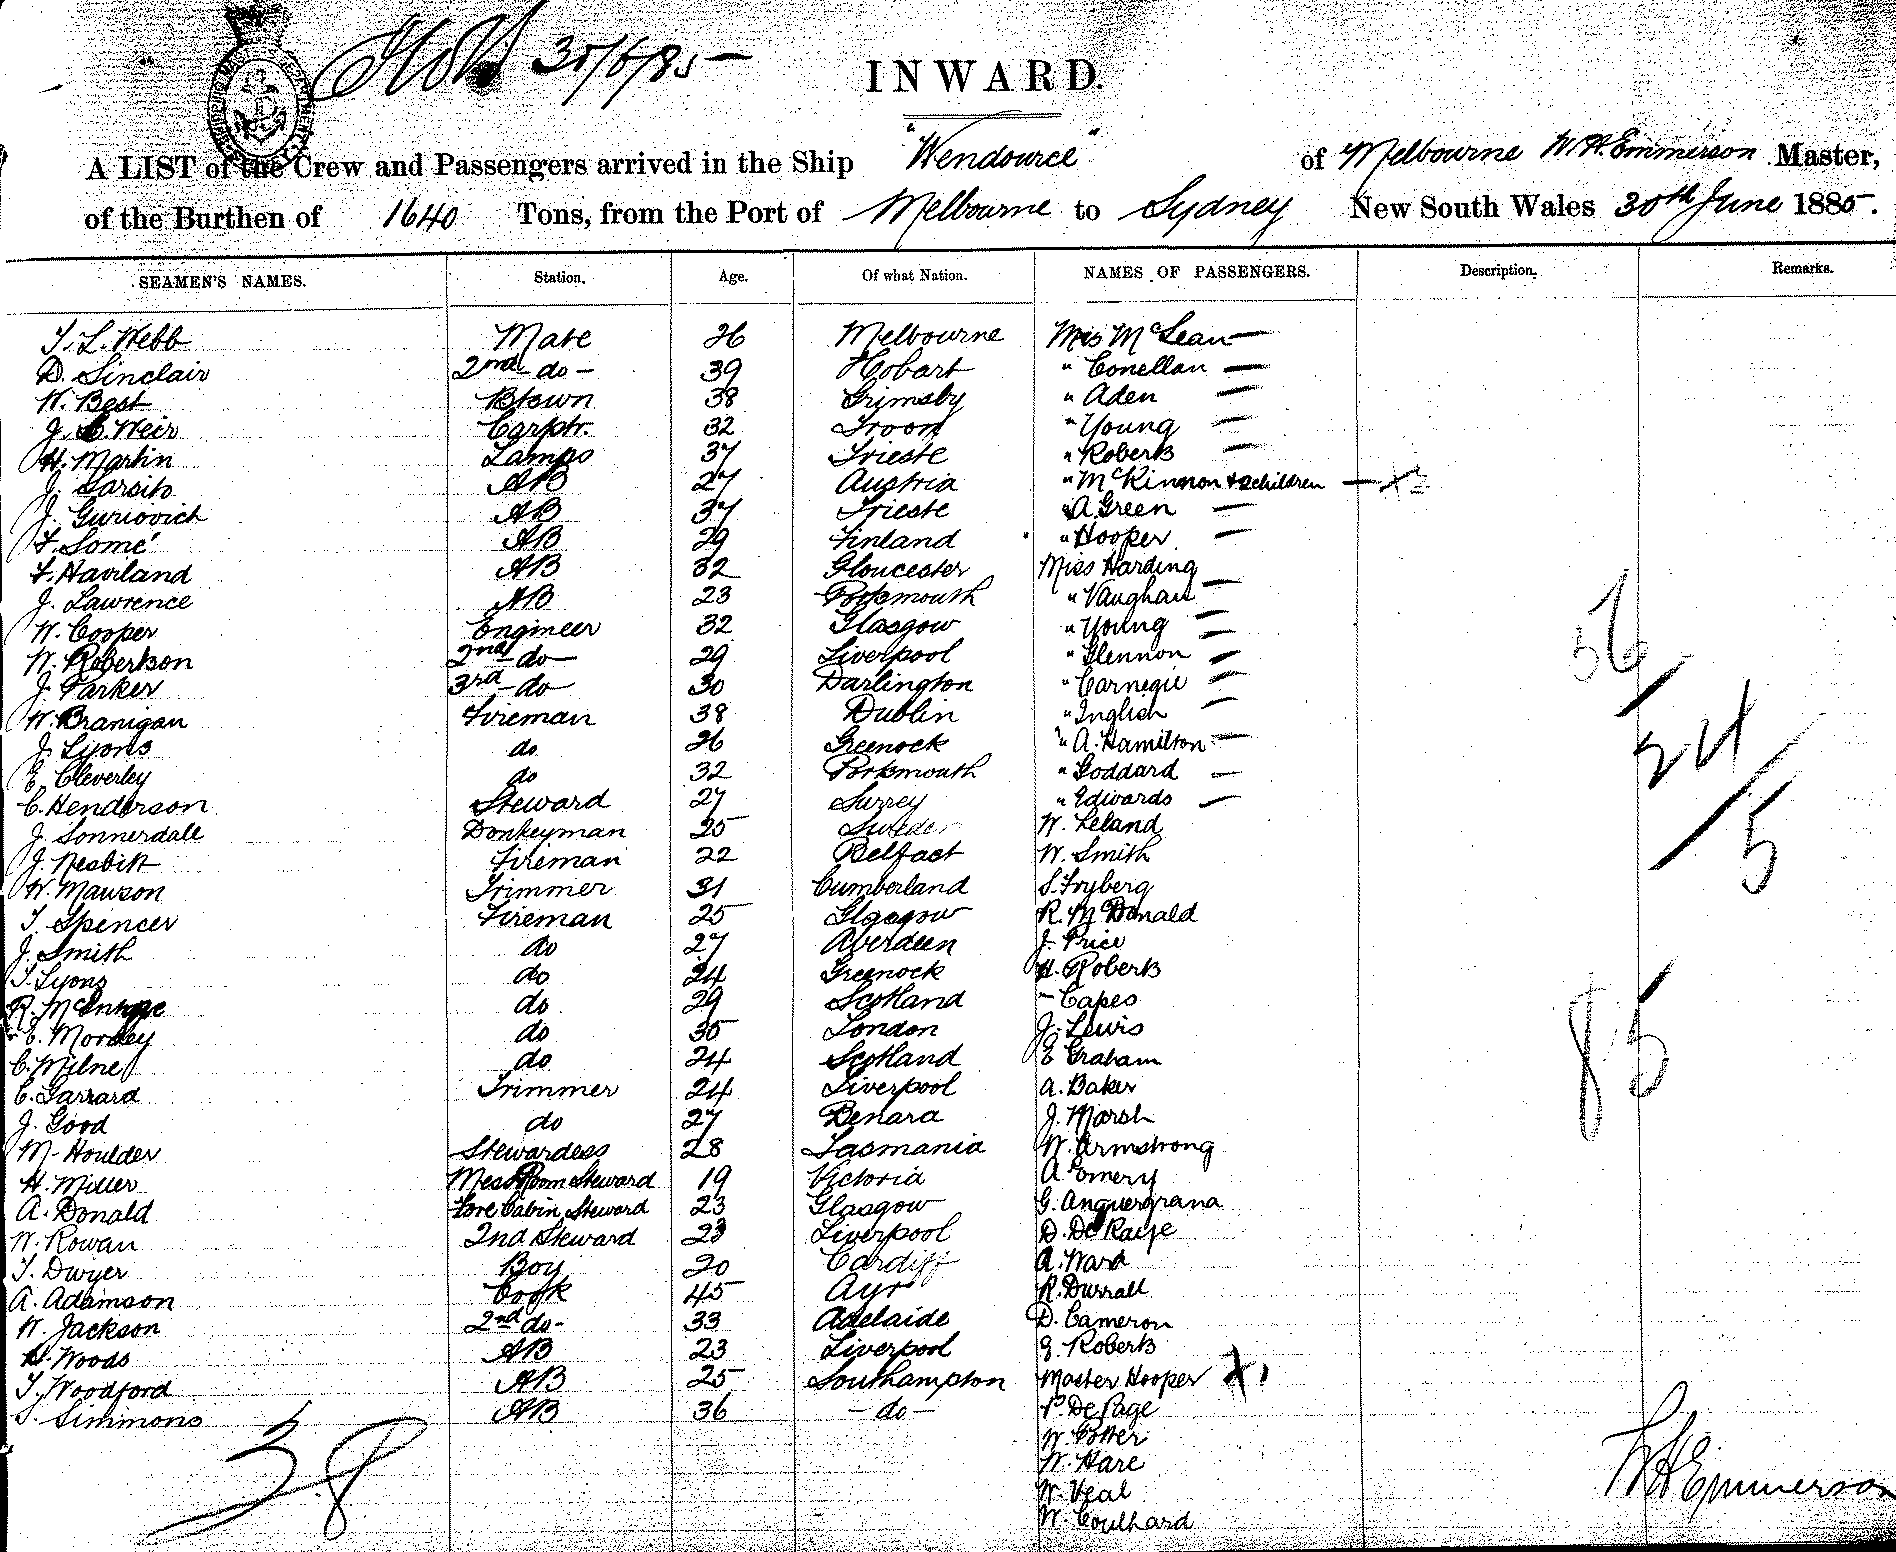 30/6/85
INWARD.
A LIST of the Crew and Passengers arrived in the Ship "Wendouree" of Melbourne W. H. Emmerson Master,
of the Burthen of 1640 Tons, from the Port of Melbourne to Sydney New South Wales 30th June 1885.
SEAMEN'S NAMES. Station. Age. Of what Nation. NAMES OF PASSENGERS. Description. Remarks.
T. L. Webb Mate 26 Melbourne Mrs McLean —
D. Sinclair 2nd do — 39 Hobart " Conellan —
W. Best Btswn 38 Grimsby " Aden —
J. Weir Carptr. 32 Troon " Young —
H. Martin Lamps 37 Trieste " Roberts —
J. Sarsito AB 27 Austria " McKinnon + 2 children —
J. Guriovich AB 37 Trieste " A. Green —
F. Somé AB 29 Finland " Hooper —
F. Haviland AB 32 Gloucester Miss Harding
J. Lawrence AB 23 Portsmouth " Vaughan —
W. Cooper Engineer 32 Glasgow " Young —
W. Robertson 2nd do 29 Liverpool " Glennon —
J. Parker 3rd do 30 Darlington " Carnegie —
W. Branigan Fireman 38 Dublin " Inglish —
J. Lyons do 26 Greenock " A. Hamilton —
E. Cleverley do 32 Portsmouth " Goddard —
C. Henderson Steward 27 Surrey " Edwards —
J. Sonnerdall Donkeyman 25 Sweden W. Leland
J. Nesbitt Fireman 22 Belfast W. Smith
W. Mawson Trimmer 31 Cumberland S. Fryberg
T. Spencer Fireman 25 Glasgow R. McDonald
J. Smith do 27 Aberdeen J. Price
T. Lyons do 24 Greenock H. Roberts
R. McIntyre do 29 Scotland — Capes
E. Mordey do 35 London J. Lewis
C. Milne do 24 Scotland E Graham
C. Garrard Trimmer 24 Liverpool A. Baker
J. Good do 27 Benara J. Marsh
M. Houlder Stewardess 28 Tasmania W. Armstrong
H. Miller Mess Room Steward 19 Victoria A Emery
A. Donald Fore Cabin Steward 23 Glasgow G. Anguergrana
W. Rowan 2nd Steward 23 Liverpool D. De Raye
T. Dwyer Boy 20 Cardiff A. Ward
A. Adamson Cook 45 Ayr R. Durrall
W. Jackson 2nd do - 33 Adelaide D. Cameron
H. Woods AB 23 Liverpool G. Roberts
T. Woodford AB 25 Southampton Master Hooper
T. Simmons AB 36 — do — P. De Page
W. Potter
W. Hare
W. Veal
W. Coulhard
38
56
24
5
85
W H Emmerson